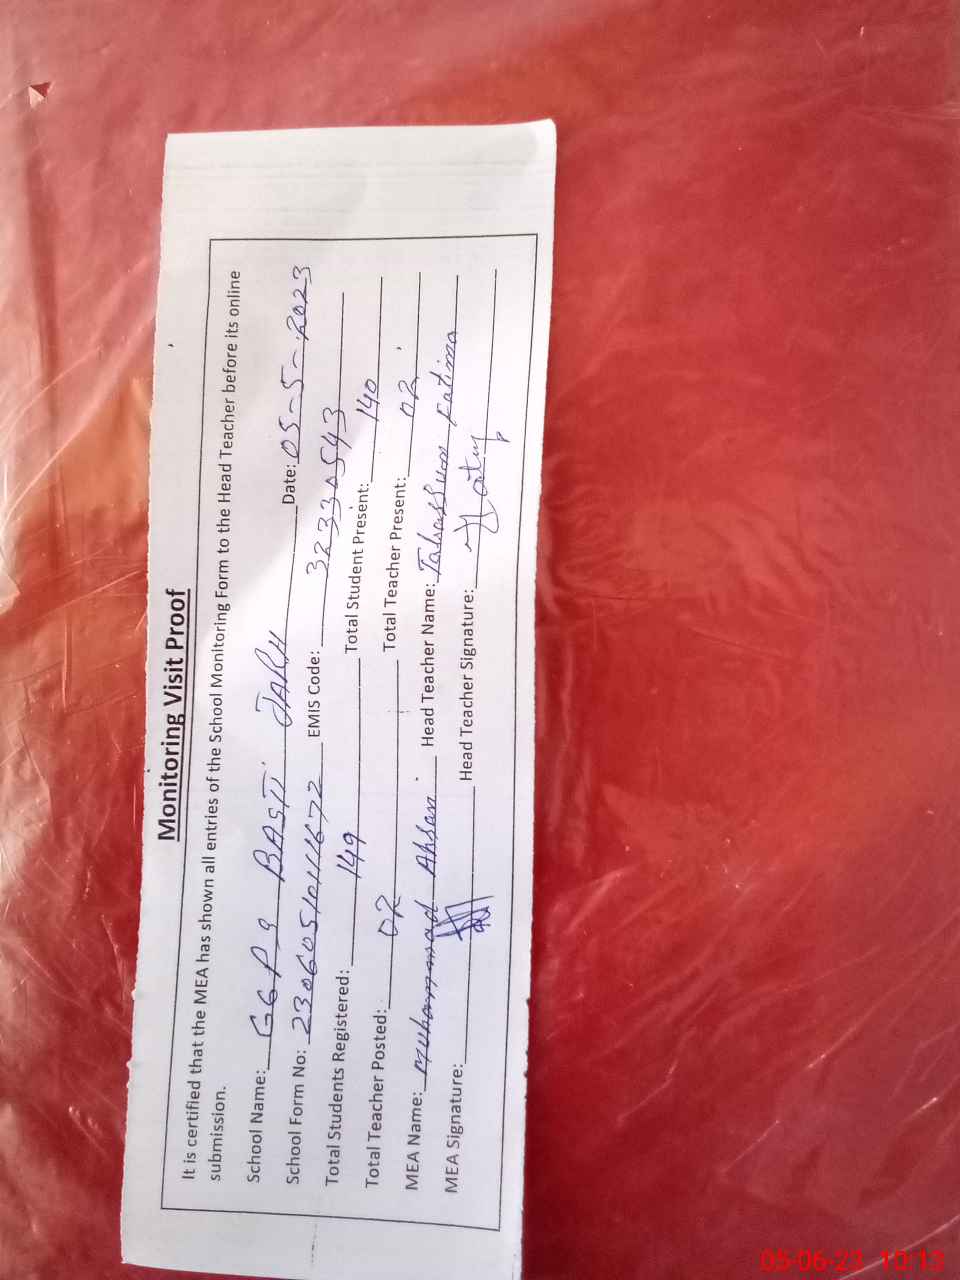 Monitoring Visit Proof
It is certified that the MEA has shown all entries of the School Monitoring Form to the Head Teacher before its online
submission.
School Name: GGPS BASTI JARH Date: 05-5-2023
School Form No: 23060510111672 EMIS Code: 32330543
Total Students Registered: 149 Total Student Present: 140
Total Teacher Posted: 02 Total Teacher Present: 02
MEA Name: Muhammad Ahsan Head Teacher Name: Tabassum Fatima
MEA Signature: Head Teacher Signature:
05-06-23 10:13